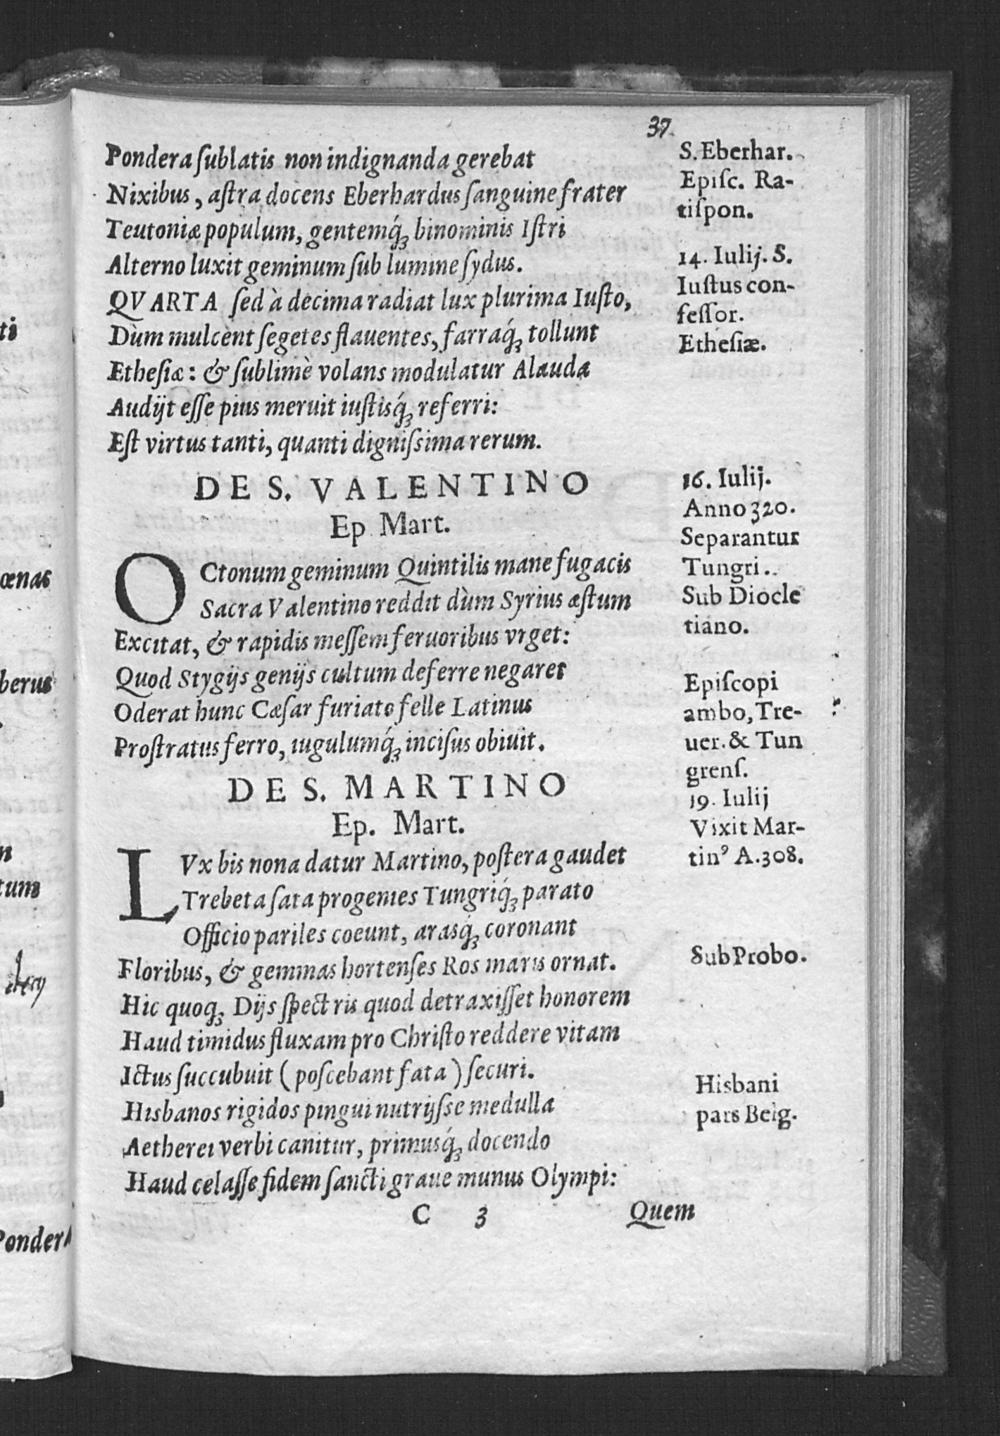 37
Pondera sublatis non indignanda gerebat
Nixibus, astra docens Eberhardus sanguine frater
Teutoniæ populum, gentemq́ꝫ binominis Istri
Alterno luxit geminum sub lumine sydus.
QVARTA sed à decima radiat lux plurima Iusto,
Dùm mulcènt segetes flauentes, farraq́ꝫ tollunt
Ethesiæ: & sublimè volans modulatur Alauda
Audijt esse pius meruit iustisq́ꝫ referri:
Est virtus tanti, quanti dignissima rerum.
DE S. VALENTINO
Ep Mart.
OCtonum geminum Quintilis mane fugacis
Sacra Valentino reddit dùm Syrius æstum
Excitat, & rapidis messem feruoribus vrget:
Quod Stygijs genijs cultum deferre negaret
Oderat hunc Cæsar furiato felle Latinus
Prostratus ferro, iugulumq́ꝫ incisus obiuit.
DE S. MARTINO
Ep. Mart.
LVx bis nona datur Martino, postera gaudet
Trebeta sata progenies Tungriq́ꝫ parato
Officio pariles coeunt, arasq́ꝫ coronant
Floribus, & gemmas hortenses Ros maris ornat.
Hic quoqꝫ Dijs spectris quod detraxisset honorem
Haud timidus fluxam pro Christo reddere vitam
Ictus succubuit (poscebant fata) securi.
Hisbanos rigidos pingui nutrijsse medulla
Aetherei verbi canitur, primusq́ꝫ docendo
Haud celasse fidem sancti graue munus Olympi:
C 3 Quem
S. Eberhar.
Episc. Ra-
tispon.
14. Iulij. S.
Iustus con-
fessor.
Ethesiæ.
16. Iulij.
Anno 320.
Separantur
Tungri..
Sub Diocle
tiano.
Episcopi
ambo, Tre-
uer. & Tun
grens.
19. Iulij
Vixit Mar-
tinꝰ A.308.
Sub Probo.
Hisbani
pars Belg.
ti
œnas
berus
n
tum
PonderA